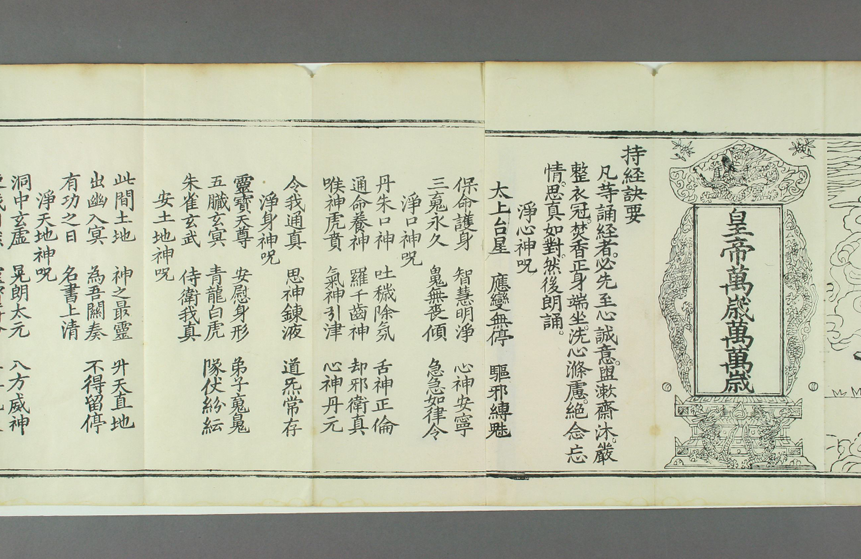 皇帝萬歲萬萬歲
持經訣要
凡荨誦經者。必先至心誠意。盥漱齋沐。嚴
整衣冠。焚香正身端坐。洗心滌慮。絕念忘
情。思真如對。然後朗誦。
淨心神呪
太上台星 應變無停 驅邪縛魅
保命護身 智慧明淨 心神安寧
三䰟永久 䰟無喪傾 急急如律令
淨口神呪
丹朱口神 吐穢除氛 舌神正倫
通命養神 羅千齒神 却邪衛真
喉神虎賁 氣神引津 心神丹元
令我通真 思神鍊液 道炁常存
淨身神呪
靈寶天尊 安慰身形 弟子䰟魄
五臟玄冥 青龍白虎 隊伏紛紜
朱雀玄武 侍衛我真
安土地神呪
此間土地 神之最靈 升天直地
出幽入冥 為吾關奏 不得留停
有功之日 名書上清
淨天地神呪
洞中玄虛 晃朗太元 八方威神